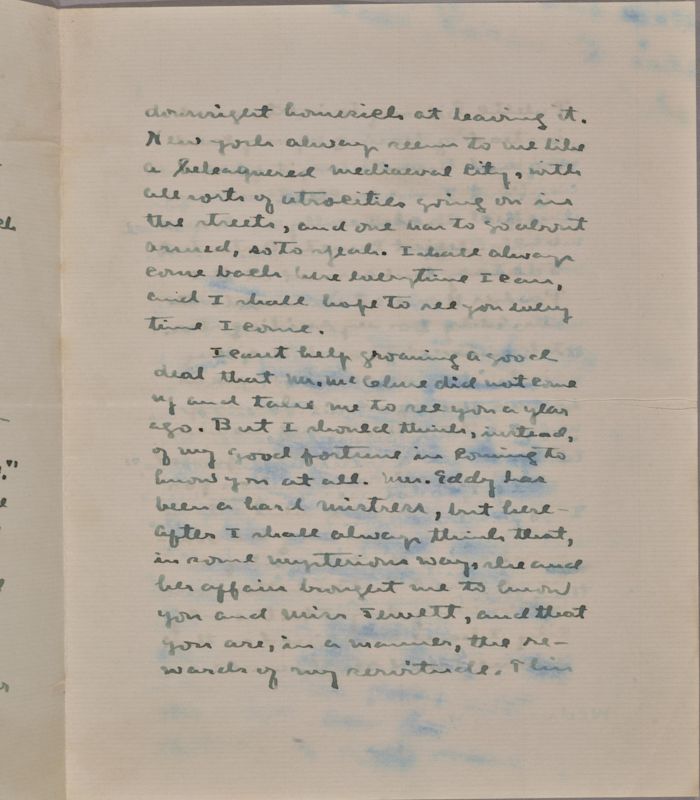 downright homesick at leaving it.
New York always seems to me like
a beleaguered mediaeval city, with
all sorts of atrocities going on in
the streets, and one has to go about
armed, so to speak. I shall always
come back here everytime I can,
and I shall hope to see you every
time I come.
I can't help groaning a good
deal that Mr. McClure did not come
up and take me to see you a year
ago. But I should think, instead,
of my good fortune in coming to
know you at all. Mrs. Eddy has
been a hard mistress, but here-
after I shall always think that,
in some mysterious way, she and
her affairs brought me to know
you and Miss Jewett, and that
you are, in a manner, the re-
wards of my servitude. This